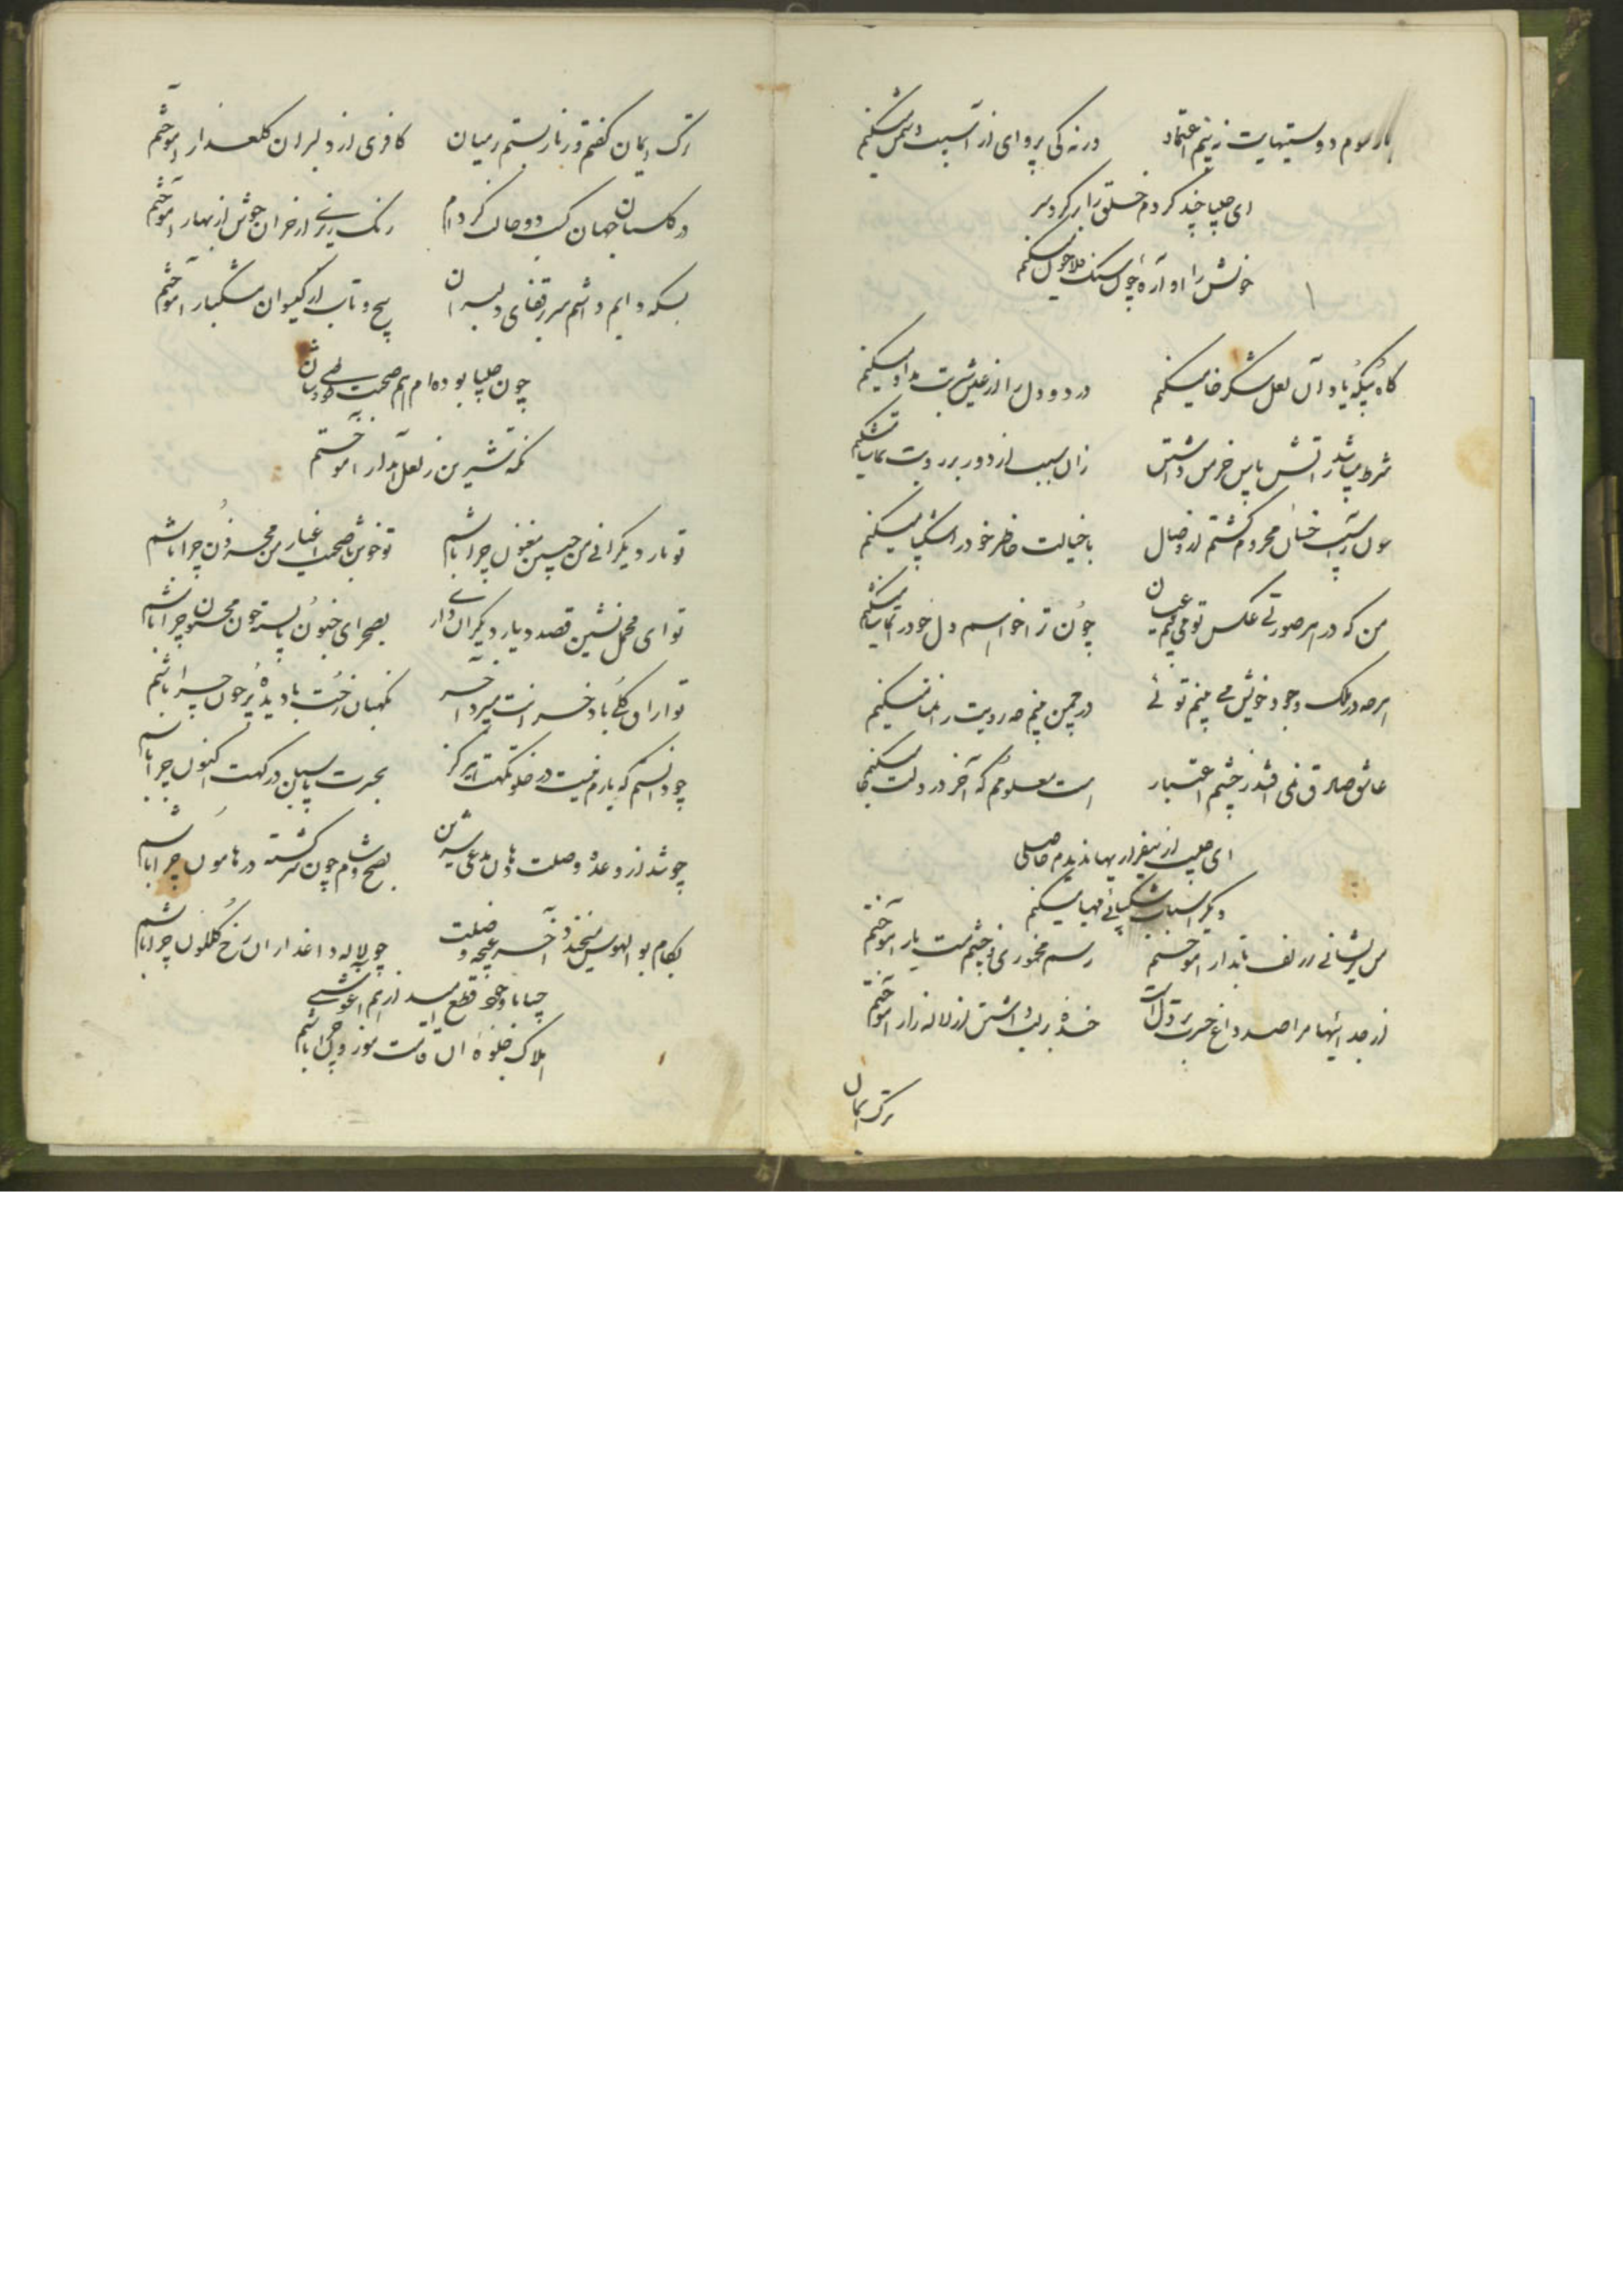 دوستیهایت نه بینم اعتماد ورنه کی پروای از آسیب دشمن میکنم
ای چلیپا چند کردم خلق را بر کرد سر
خویش را آواره چون سنگ فلاخن میکنم
گاه یاد آن لعل شکرخا میکنم درد دل را از شربت مداوا میکنم
شرط میباشد ز آتش پاس خرمن داشتن زان سبب از دور بر رویت تماشا میکنم
محروم گشتم از وصال با خیالت خاطر خود را شکیبا میکنم
من که در هر صورتی عکس تو می بینم عیان چون ترا خواهم دل خود را تماشا میکنم
هرچه در ملک وجود خویش می بینم توئی در چمن بینم چه رویت را تمنا میکنم
عاشق صادق نمی افتد ز چشم اعتبار است معلومم که آخر در دلت جا میکنم
ای چلیپا از بیقراریها ندیدم حاصلی
دیگر اسباب شکیبائی مهیا میکنم
من پریشانی ز زلف تابدار آموختم رسم مخموری ز چشم مست یار آموختم
از جدائیها مرا صد داغ حسرت بر دل است خنده بر لب داشتن از لاله زار آموختم
ترک ایمان
ترک ایمان گفتم و زنار بستم در میان کافری از دلبران گلعذار آموختم
در گلستان جهان کسب دو حالت کرده ام رنگ ریزی از خزان جوش از بهار آموختم
بسکه دایم داشتم سر در قفای دلبران پیچ و تاب از گیسوان مشکبار آموختم
چون چلیپا بوده ام هم صحبت
نکته شیرین ز لعل آبدار آموختم
تو یار دیگرانی من چنین مفتون چرا باشم تو خوش با صحبت اغیار من محزون چرا باشم
تو ای محمل نشین قصد دیار دیگران داری بصحرای جنون پا بسته چون مجنون چرا باشم
نگهبان رخت با دیده پرخون چرا باشم
چو دانستم که بارم نیست در خلوتگهت هرگز بحسرت پاسبان درگهت اکنون چرا باشم
چو شد از وعده وصلت دل مدعی شیرین بصبح و شام چون سرگشته در هامون چرا باشم
بکام بوالهوس خندد آخر غنچه وصلت چو لاله داغدار آن رخ گلگون چرا باشم
قطع امید از هم آغوشی
هلاک جلوه آن قامت موزون چرا باشم